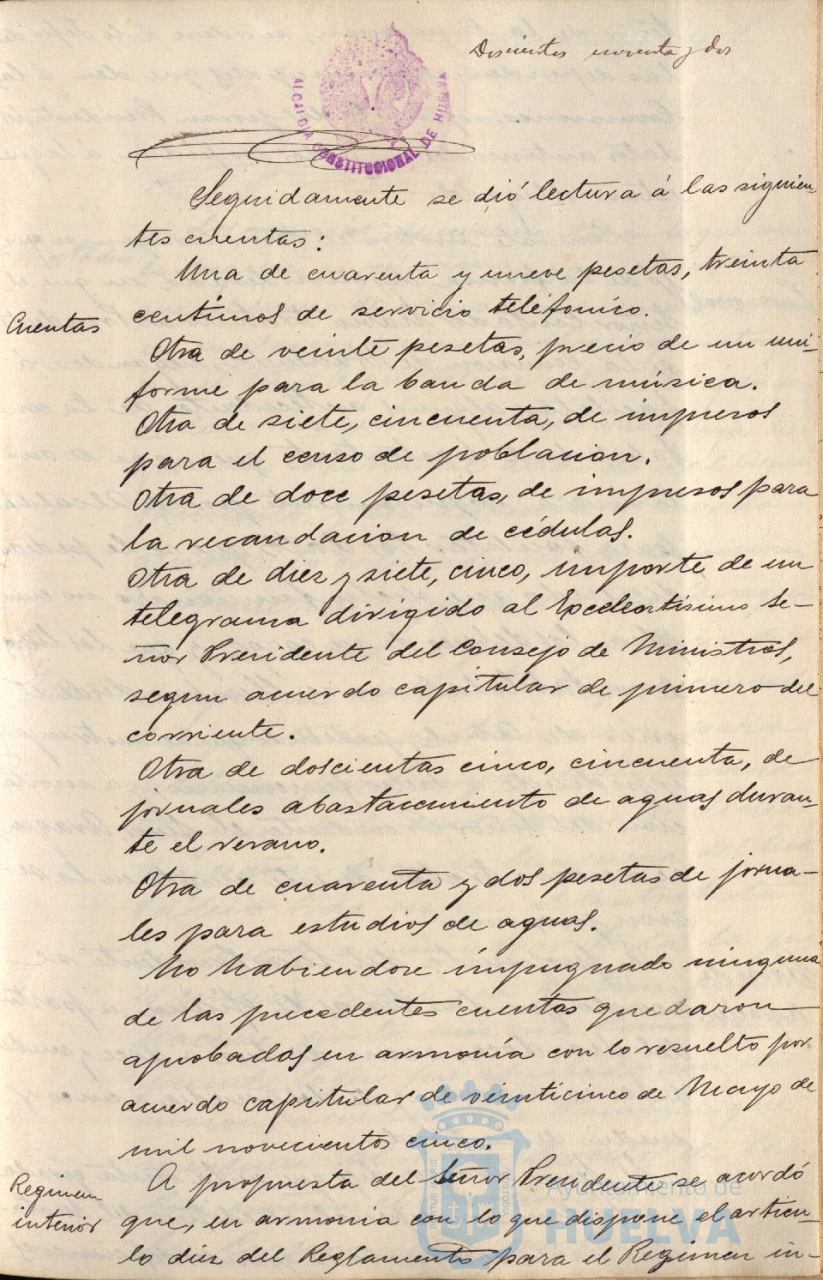 Doscientos noventa y dos
ALCALDIA CONSTITUCIONAL DE HUELVA
Seguidamente se dió lectura á las siguien-
tes cuentas:
Una de cuarenta y nueve pesetas, treinta
Cuentas
centimos de servicio telefónico.
Otra de veinte pesetas, precio de un uni-
forme para la banda de música.
Otra de siete, cincuenta, de impresos
para el censo de poblacion.
Otra de doce pesetas, de impresos para
la recaudacion de cédulas.
Otra de diez y siete, cinco, importe de un
telegrama dirigido al Excelentisimo Se-
ñor Presidente del Consejo de Ministros,
segun acuerdo capitular de primero del
corriente.
Otra de doscientas cinco, cincuenta, de
jornales abastecimiento de aguas duran-
te el verano.
Otra de cuarenta y dos pesetas de jorna-
les para estudios de aguas.
No habiendose impugnado ninguna
de las precedentes cuentas quedaron
aprobadas en armonía con lo resuelto por
acuerdo capitular de veinticinco de Mayo de
mil novecientos cinco.
Regimen
interior
A propuesta del Señor Presidente se acordó
que, en armonia con lo que dispone el articu-
lo diez del Reglamento para el Regimen in-
Ayuntamiento de
HUELVA